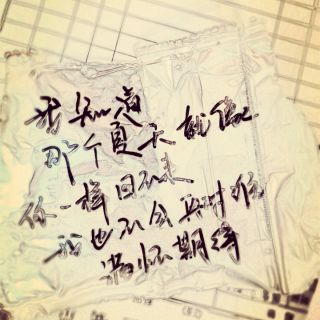 我知道
那个夏天就像你
一样回不来
我也不会再对谁
满怀期待